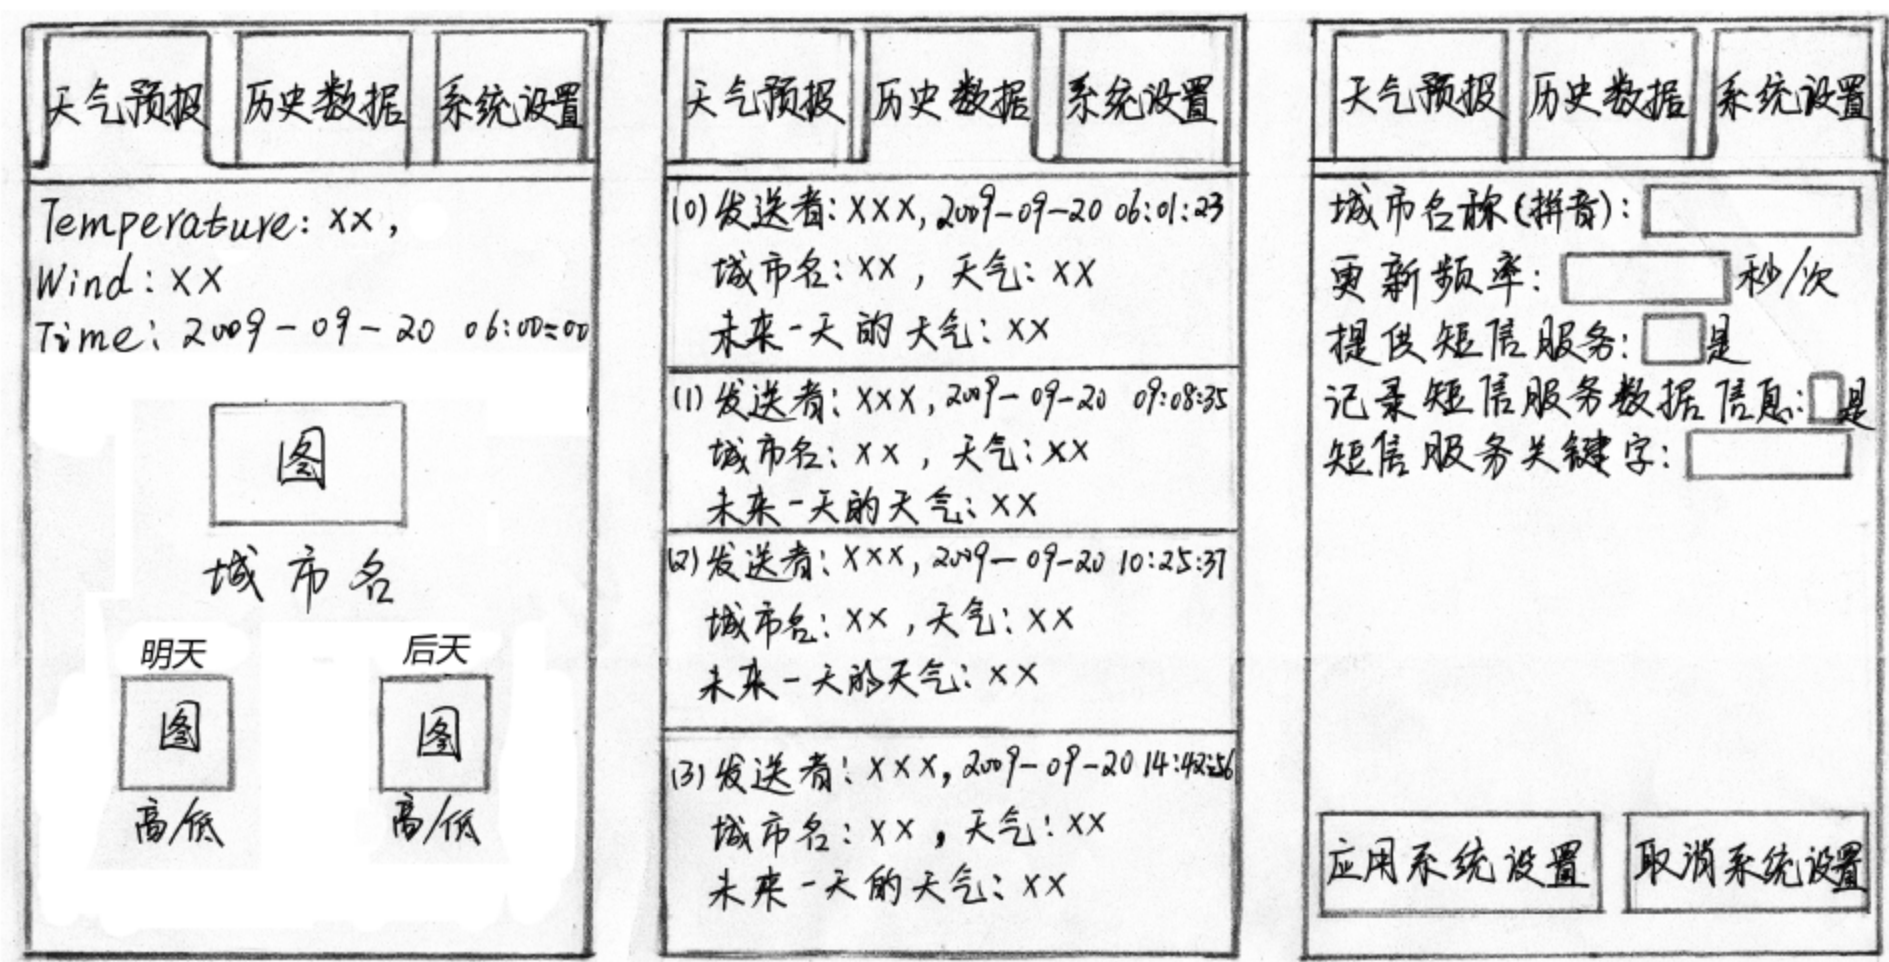 天气预报 历史数据 系统设置
Temperature: xx,
Wind: xx
Time: 2009-09-20 06:00:00
图
城市名
明天 后天
图 图
高/低 高/低
天气预报 历史数据 系统设置
(0) 发送者: xxx, 2009-09-20 06:01:23
城市名: xx, 天气: xx
未来一天的天气: xx
(1) 发送者: xxx, 2009-09-20 09:08:35
城市名: xx, 天气: xx
未来一天的天气: xx
(2) 发送者: xxx, 2009-09-20 10:25:37
城市名: xx, 天气: xx
未来一天的天气: xx
(3) 发送者: xxx, 2009-09-20 14:42:56
城市名: xx, 天气: xx
未来一天的天气: xx
天气预报 历史数据 系统设置
城市名称(拼音):
更新频率: 秒/次
提供短信服务: 是
记录短信服务数据信息: 是
短信服务关键字:
应用系统设置 取消系统设置